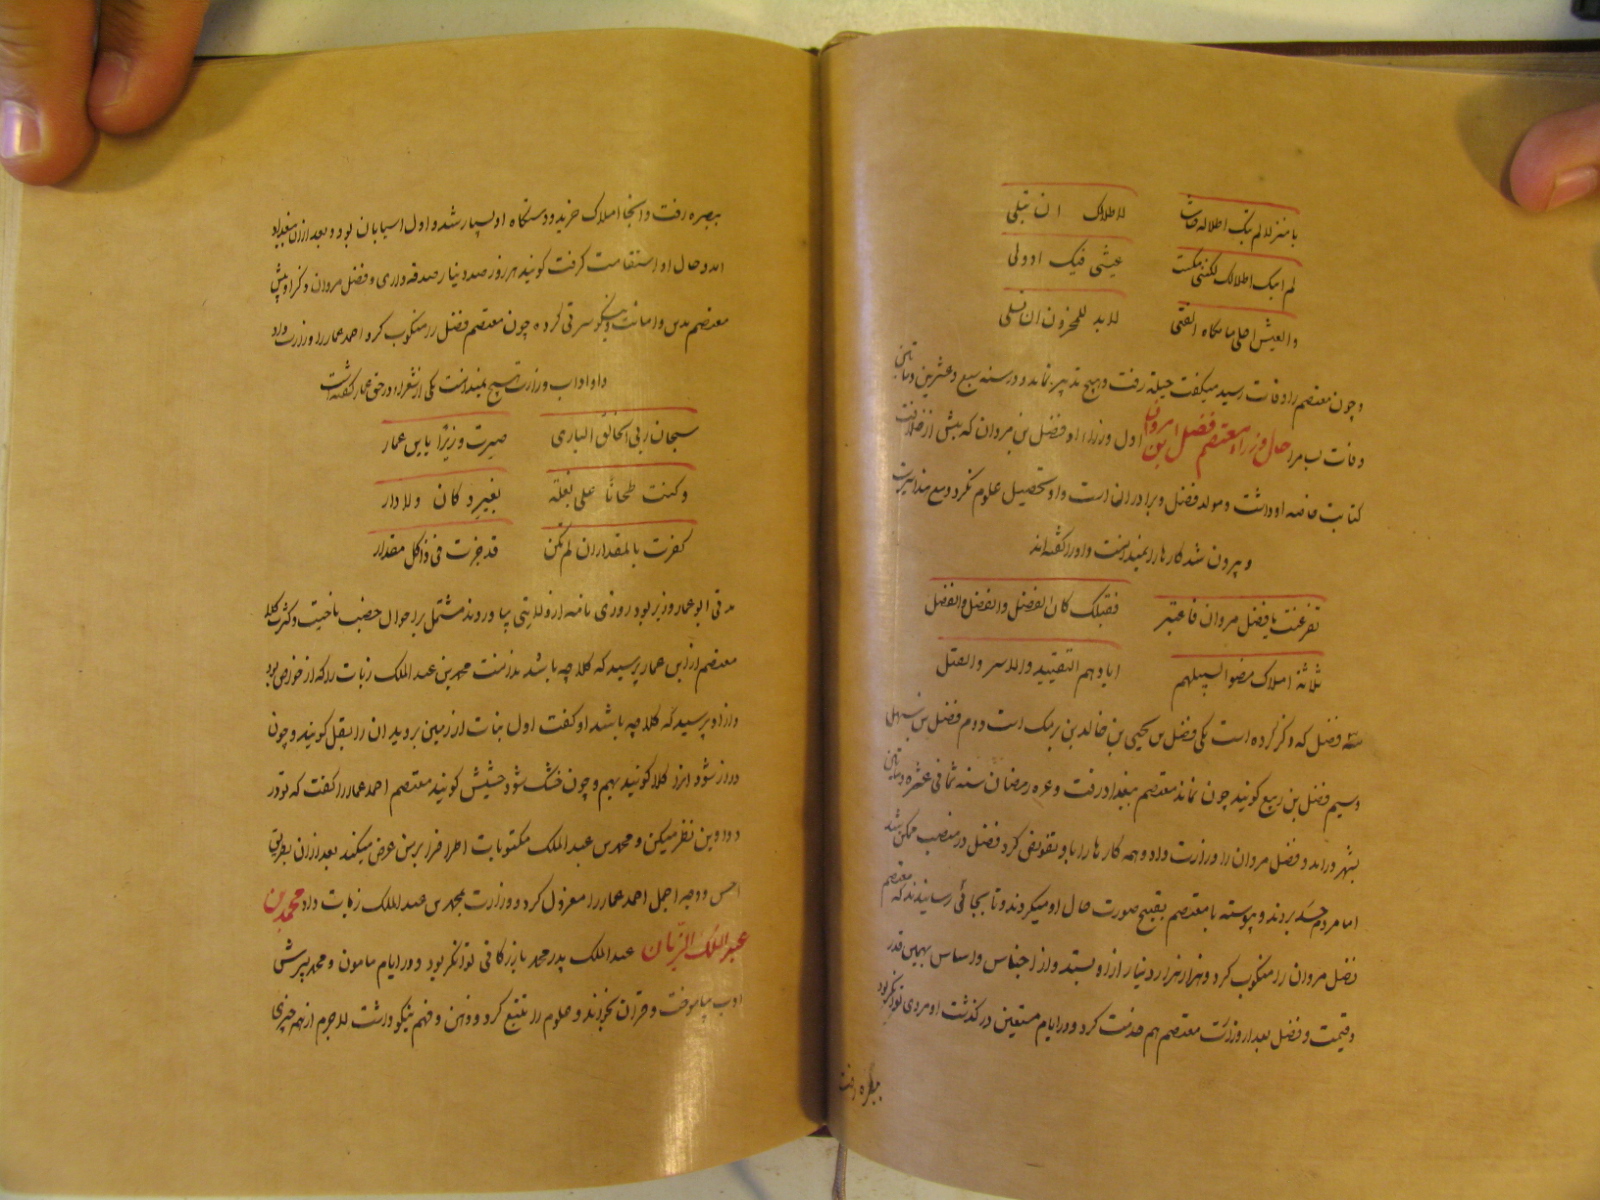 یا منزلا لم تبل اطلاله حاشا لاطلالک ان تبلی
لم ابک اطلالک لکننی بکیت عیشی فیک اذ ولی
والعیش احلی ما بکاه الفتی لابد للمحزون ان یسلی
و چون معتصم را وفات رسید میگفت حیله رفت و هیچ تدبیر نماند و در سنه سبع و عشرین و مأتین
وفات یافت حال وزراء معتصم فضل بن مروان اول وزراء او فضل بن مروان که پیش از خلافت
کتابت خاصه او داشت و مولد فضل و برادران است و او تحصیل علوم نکرد و
و بیرون شد کارها را نمیدانست و او را گفته‌اند
تفرعنت یا فضل مروان فاعتبر فقبلک کان الفضل والفضل والفضل
ثلاثة املاک مضوا لسبیلهم ابادهم التقیید والاسر والقتل
سه فضل که ذکر کرده است یکی فضل بن یحیی بن خالد بن برمک است و دوم فضل بن سهل
و سیم فضل بن ربیع گویند چون نماند معتصم ببغداد رفت و غره رمضان سنه ثمانی عشره و مأتین
بشهر درآمد و فضل مروان را وزارت داد و همه کارها را باو تفویض کرد فضل در منصب ممکن شد
اما مردم حسد بردند و پیوسته با معتصم بقبیح صورت حال او میکردند و تا بجائی رسانیدند که معتصم
فضل مروان را منکوب کرد و هزار هزار دینار ازو بستد و از اجناس و اساس بهمین قدر
و قیمت و فضل بعد از وزارت معتصم هم خدمت کرد و در ایام مستعین درگذشت او مردی توانگر بود
ببصره رفت
ببصره رفت و آنجا املاک خرید و دستگاه او بسیار شد و اول آسیابان بود و بعد از آن ببغداد
آمد و حال او استقامت گرفت گویند هر روز صد دینار صدقه دادی و فضل مروان ذکر او پیش
معتصم بدین و امانت و نیکو سیرتی کرده چون معتصم فضل را منکوب کرد احمد عمار را وزارت داد
و او آداب وزارت هیچ نمیدانست یکی از شعراء در حق عمار گفته است
سبحان ربی الخالق الباری صیرت وزیرا یا بن عمار
وکنت طحانا علی بغلة بغیر دکان ولا دار
کفرت بالمقدار ان لم تکن قد جزت فی ذا کل مقدار
مدتی ابو عمار وزیر بود روزی نامه از ولایتی بیاوردند مشتمل بر احوال خصب ناحیت و کثرت کلا
معتصم از ابن عمار پرسید که کلا چه باشد ندانست محمد بن عبد الملک زیات را که از خواص بود
و از او پرسید که کلا چه باشد او گفت اول نبات از زمین بروید آن را بقل گویند و چون
دراز شود آنرا کلا گویند بهم و چون خشک شود حشیش گویند معتصم احمد عمار را گفت که تو در
دواوین نظر میکن و محمد بن عبد الملک مکتوبات اطراف را بر من عرض میکند بعد از آن بطریق
احسن و وجه اجمل احمد عمار را معزول کرد و وزارت بمحمد بن عبد الملک زیات داد محمد بن
عبد الملک الزیات عبد الملک پدر محمد بازرگانی توانگر بود و در ایام مامون و محمد پسرش
ادب بیاموخت و قرآن بخواند و علوم را تتبع کرد و ذهن و فهم نیکو داشت لاجرم از هر چیزی